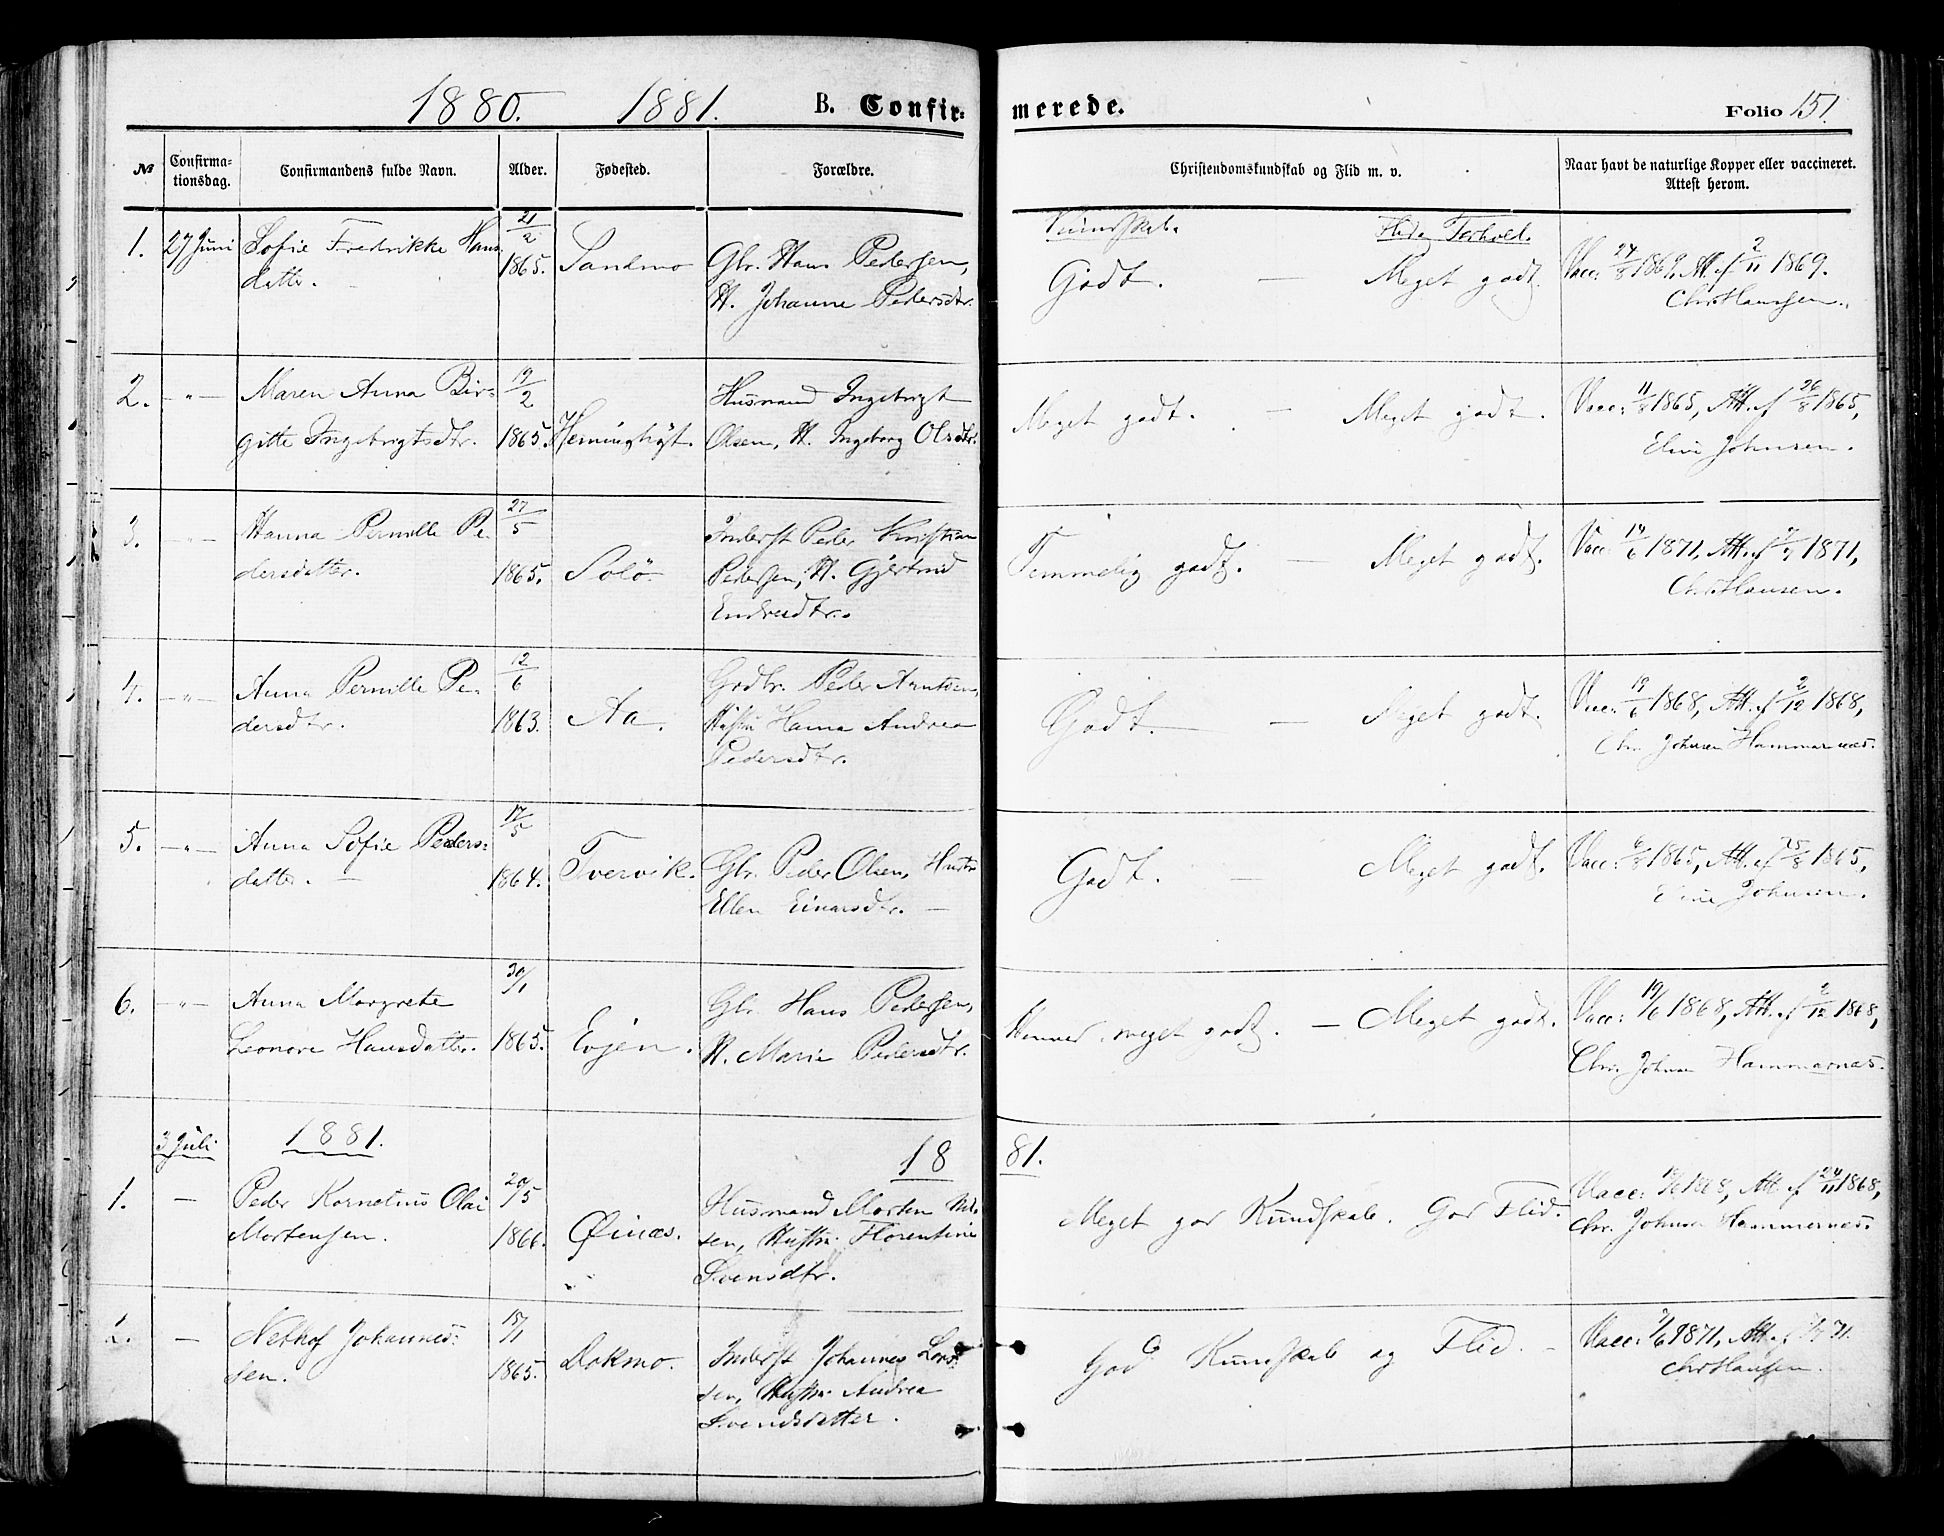 1880. 1881. B. Confir-
merede. Folio 151.
№ Confirma-tionsdag. Confirmandens fulde Navn. Alder. Fødested. Forældre. Christendomskundskab og Flid m. v. Naar havt de naturlige Kopper eller vaccineret. Attest herom.
Kundskab. Flid og Forhold.
1. 27 Juni Sofie Fredrikke Hans-
datter.
21/2 1865. Sandmo
Gbr. Hans Pedersen,
H. Johanne Pedersdtr.
Godt. — Meget godt.
Vacc: 24/8 1869, Att. af 2/11 1869.
Chr Hansen.
2. —„— Maren Anna Bir-
gitte Ingebrigtsdtr.
19/2 1865.
Husmand Ingebrigt
Olsen, H. Ingeborg Olsdtr.
Meget godt. — Meget godt.
Vacc: 11/8 1865, Att. af 26/8 1865,
Johnsen.
3. —„— Hanna Pernille Pe-
dersdatter.
27/5 1865. Solö
Inderst Peder Kristian
Pedersen, H. Gjertrud
Endresdtr.
Temmelig godt. — Meget godt.
Vacc: 14/6 1871, Att. af 7/7 1871,
Chr Hansen.
4. —„— Anna Pernille Pe-
dersdtr.
12/6 1863. Aa.
Peder Arntsen,
Hustru Hanna Andrea
Pedersdtr.
Godt. — Meget godt.
Vacc: 19/6 1868, Att. af 2/12 1868,
Chr. Johnsen Hammarnæs.
5. —„— Anna Sofie Peders-
datter. —
17/5 1864. Tvervik.
Gbr. Peder Olsen, Hustr
Ellen Einarsdtr. —
Godt. — Meget godt.
Vacc: 6/8 1865, Att. af 25/8 1865,
Johnsen.
6. —„— Anna Margrete
Leonore Hansdatter.
30/1 1865. Evjen.
Gbr. Hans Pedersen,
H. Marie Pedersdtr.
meget godt. — Meget godt.
Vacc: 19/6 1868, Att. af 2/12 1868,
Chr. Johnsen Hammarnæs.
3 Juli 1881. 18
81.
1. — Peder Kornelius Olai
Mortensen.
20/5 1866. Øinæs.
Husmand Morten Nil-
sen, Hustru Florentine
Svensdtr.
Meget god Kundskab. God Flid.
Vacc: 19/6 1868, Att. af 24/11 1868,
Chr. Johnsen Hammernæs.
2. — Johannes-
sen.
15/1 1865. Dokmo.
Inderst Johannes Lars-
sen, Hustru Andrea
Svendsdatter.
God Kundskab og Flid. —
Vacc: 1871, Att. af 7/7 71.
Chr Hansen.